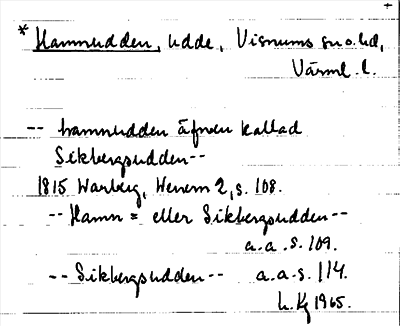 * Hamnudden, udde, Visnums sn o. hd,
Värml. l.
-- hamnudden äfven kallad
Sikbergsudden --
1815 Warberg, Wenern 2, s. 108.
-- Hamn = eller Sikbergsudden --
a.a. s. 109.
-- Sikbergsudden -- a.a. s. 114.
1965.